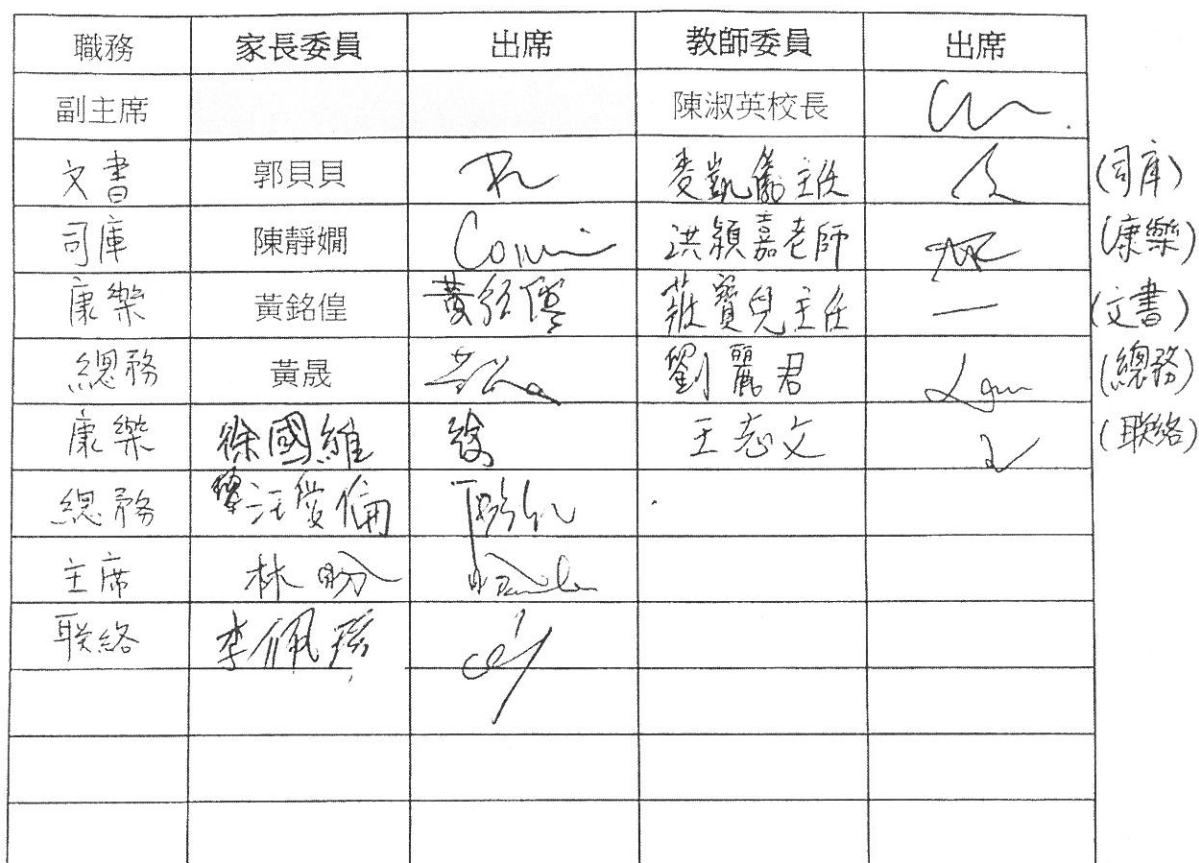 職務 家長委員 出席 教師委員 出席
副主席 陳淑英校長
文書 郭貝貝 麥凱儀主任 (司庫)
司庫 陳靜嫺 Conni 洪穎嘉老師 (康樂)
康樂 黃銘偟 莊寶兒主任 — (文書)
總務 黃晟 劉麗君 (總務)
康樂 徐國維 徐 王志文 (联絡)
總務 汪愛倫
主席 林盼
联絡 李佩